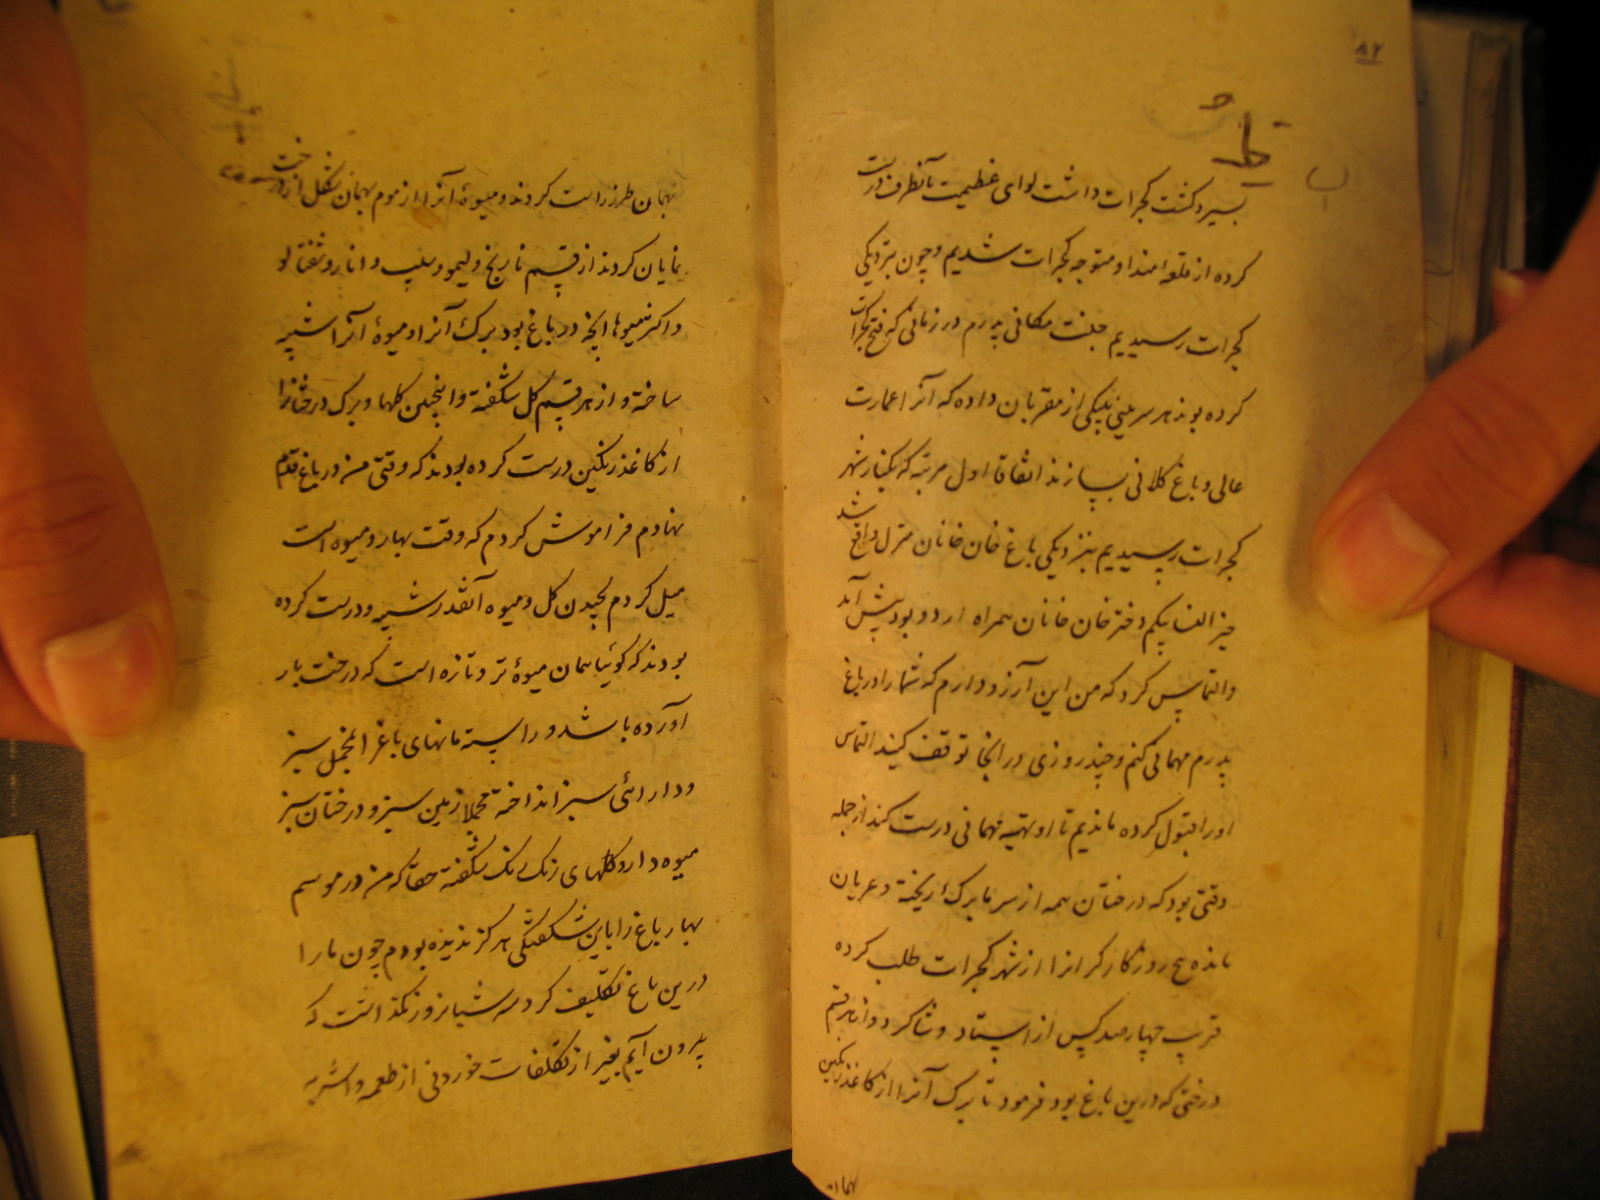 ۸۲
بسیر و گشت گجرات داشت لوای عظیمت بآنطرف درست
کرده از قلعه مندو متوجه گجرات شدیم و چون بنزدیکی
گجرات رسیدیم جنت مکانی پدرم در زمانی که فتح گجرات
کرده بودند هر سر زمینی بیکی از مقربان داده که آنرا عمارت
عالی و باغ کلانی بسازند اتفاقا اول مرتبه که بکنار شهر
گجرات رسیدیم بنزدیکی باغ خان خانان منزل واقع شد
خیر النسا بیگم دختر خان خانان همراه اردو بود پیش آمد
و التماس کرد که من این آرزو دارم که شما را در باغ
پدرم مهمانی کنم و چند روزی در انجا توقف کنید التماس
اورا قبول کرده ماندیم تا او تهیه مهمانی درست کند از جمله
وقتی بود که درختان همه از سرما برگ ریخته و عریان
مانده پنج روز کارکرانرا از شهر گجرات طلب کرده
قریب چهار صد کس از استاد و شاکرد و از هر قسم
درختی که درین باغ بود فرمود تا برگ آنرا از کاغذ رنگین
بهمان طرز راست کردند و میوهٔ آنرا از موم بهمان شکل از درخت
نمایان کردند از قسم نارنج و لیمو و سیب و انار و شفتالو
و اکثر میوها انچه در باغ بود برگ آنرا و میوهٔ آنرا شبیه
ساخته و از هر قسم گل شگفته و اینچنین گلها و برگ درختانرا
از کاغذ رنگین درست کرده بودند که وقتی من در باغ قدم
نهادم فراموش کردم که وقت بهار و میوه است
میل کردم بچیدن گل و میوه آنقدر شبیه و درست کرده
بودند که گوئیا همان میوهٔ تر و تازه است که درخت بار
آورده باشد و راسته مانهای باغ را بمخمل سبز
و دارائی سبز انداخته مجملا زمین سبز و درختان سبز
میوه دار و گلهای رنگ رنگ شگفته حقا که من در موسم
بهار باغ را باین شگفتگی هرگز ندیده بودم چون ما را
درین باغ تکلیف کرد سه شبانروز نگذاشت که
بیرون آیم بغیر از تکلفات خوردنی از طعمه و اشربه